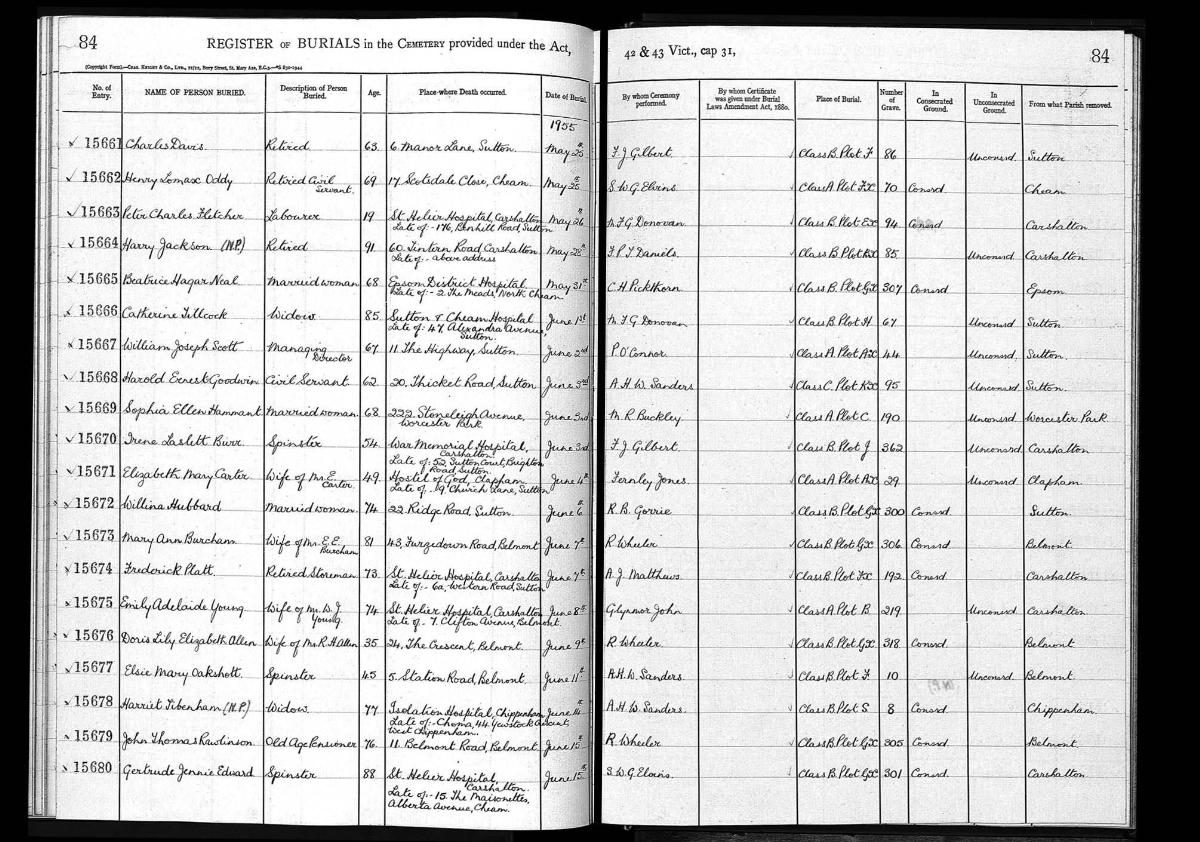 84 REGISTER OF BURIALS in the CEMETERY provided under the Act, 42 & 43 Vict., cap 31, 84
(Copyright Form).—CHAS. KNIGHT & CO., LTD., 11/12, Bury Street, St. Mary Axe, E.C.3.
No. of Entry. NAME OF PERSON BURIED. Description of Person Buried. Age. Place where Death occurred. Date of Burial. By whom Ceremony performed. By whom Certificate was given under Burial Laws Amendment Act, 1880. Place of Burial. Number of Grave. In Consecrated Ground. In Unconsecrated Ground. From what Parish removed.
1955
15661 Charles Davis Retired 63. 6. Manor Lane, Sutton. May 25th F. J Gilbert. Class B. Plot F 86 Unconsrd Sutton
15662 Henry Lomax Oddy Retired Civil Servant. 69 17 Scotsdale Close, Cheam. May 25th S. W. G. Elvins Class A. Plot FX 70 Consrd Cheam
15663 Peter Charles Fletcher Labourer 19 St. Helier Hospital, Carshalton
Late of:- 176, Benhill Road, Sutton May 26th F G Donovan Class B. Plot EX 94 Consrd Carshalton
15664 Harry Jackson (N.P.) Retired 91. 60 Tintern Road, Carshalton
Late of:- above address May 28th F. P. J Daniels. Class B. Plot KX 85 Unconsrd Carshalton
15665 Beatrice Hagar Neal Married woman 68 Epsom District Hospital
Late of:- 2. The Meads, North Cheam May 31st C. H Pickthorn Class B. Plot GX 307 Consrd Epsom
15666 Catherine Tillcock Widow 85. Sutton & Cheam Hospital
Late of:- 47 Alexandra Avenue,
Sutton. June 1st F G Donovan Class B. Plot H 67 Unconsrd Sutton
15667 William Joseph Scott Managing Director 67 11 The Highway, Sutton. June 2nd P. O'Connor Class A Plot AX 44 Unconsrd Sutton.
15668 Harold Ernest Goodwin Civil Servant 62. 20, Thicket Road, Sutton June 3rd A. H. W. Sanders Class C. Plot KX 95 Unconsrd Sutton.
15669 Sophia Ellen Hammant Married woman 68. 222. Stoneleigh Avenue,
Worcester Park June 3rd M R Buckley Class A Plot C. 190 Unconsrd Worcester Park.
15670 Irene Laslett Burr. Spinster 54. War Memorial Hospital,
Carshalton.
Late of: 52, Sutton Court, Brighton
Road, Sutton. June 3rd F. J Gilbert. Class B. Plot J 362 Unconsrd Carshalton
15671 Elizabeth Mary Carter Wife of Mr. E. Carter. 49. Hostel of God, Clapham.
Late of:- 19. Church Lane, Sutton June 4th Fernley Jones. Class A Plot AX 29 Unconsrd Clapham.
15672 Willina Hubbard Married woman. 74 22 Ridge Road, Sutton. June 6th R. B. Gorrie Class B. Plot GX 300 Consrd Sutton.
15673 Mary Ann Burcham Wife of Mr. E. E. Burcham 81 43, Furzedown Road, Belmont June 7th R. Wheeler Class B. Plot GX 306 Consrd Belmont.
15674 Frederick Platt. Retired Storeman 73. St. Helier Hospital, Carshalton
Late of:- 6a, Western Road, Sutton June 7th A. J. Matthews Class B. Plot FX 192 Consrd Carshalton.
15675 Emily Adelaide Young. Wife of Mr. W. J Young. 74 St. Helier Hospital, Carshalton
Late of:- 7. Clifton Avenue, Belmont. June 8th Glynmor John Class A. Plot B 219 Unconsrd Carshalton
15676 Doris Lily Elizabeth Allen Wife of Mr. R. H Allen 35 24, The Crescent, Belmont. June 9th R. Wheeler. Class B. Plot GX 318 Consrd Belmont
15677 Elsie Mary Oakshott. Spinster 45 5. Station Road, Belmont. June 11th A. H. W. Sanders. Class B. Plot F 10 Unconsrd Belmont.
15678 Harriet Tibenham (N.P.) Widow. 77 Isolation Hospital, Chippenham
Late of:- Choma, 44 Yewstock Crescent,
West Chippenham. June 14th A. H. W. Sanders. Class B. Plot S 8 Consrd Chippenham.
15679 John Thomas Rawlinson Old Age Pensioner 76. 11. Belmont Road, Belmont. June 15th R. Wheeler Class B. Plot GX 305 Consrd Belmont.
15680 Gertrude Jennie Edward Spinster 88 St. Helier Hospital,
Carshalton.
Late of:- 15. The Maisonettes,
Alberta Avenue, Cheam. June 15th S. W. G. Elvins. Class B. Plot GX 301 Consrd Carshalton